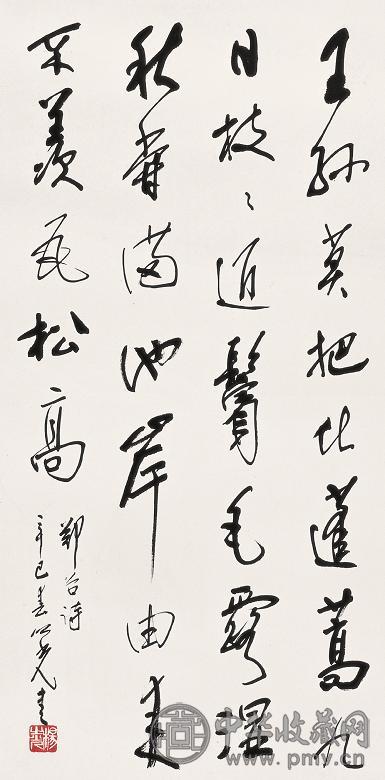 王孙莫把比蓬蒿九
日枝〻近鬓毛露湿
秋香满池岸由来
不羡瓦松高
郑谷诗
辛巳春 书
中华收藏网